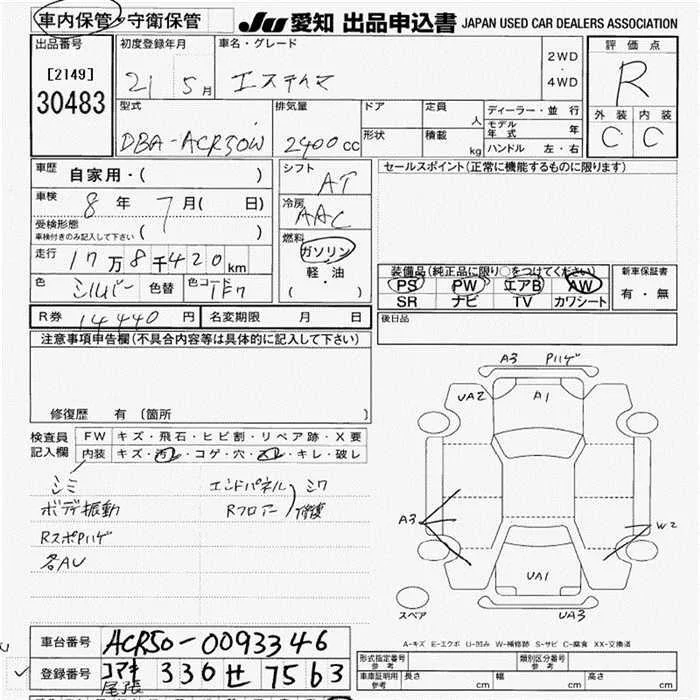 車内保管・守衛保管
JU 愛知 出品申込書 JAPAN USED CAR DEALERS ASSOCIATION
出品番号
[2149]
30483
初度登録年月
21 5月
車名・グレード
エスティマ
2WD
・
4WD
評価点
R
外装 内装
C C
型式
DBA-ACR50W
排気量
2400cc
ドア
形状
定員 人
積載 kg
ディーラー・並行
モデル年式 年
ハンドル 左・右
車歴
自家用・( )
車検
8年 7月( 日)
受検形態
車検付きのみ記入して下さい ( )
走行
17万8千420km
色
シルバー
色替
色コード
1F7
シフト
AT
冷房
AAC
燃料
ガソリン
軽・油
( ・ )
セールスポイント(正常に機能するものに限ります)
装備品(純正品に限り○をつけてください)
PS PW エアB AW
SR ナビ TV カワシート
新車保証書
有・無
後日品
R券 14440円
名変期限 月 日
注意事項申告欄(不具合内容等は具体的に記入して下さい)
修復歴 有〔箇所 〕
検査員
記入欄
FW キズ・飛石・ヒビ割・リペア跡・X要
内装 キズ・汚レ・コゲ・穴・スレ・キレ・破レ
シミ
ボデー振動
RスポPハゲ
各AU
エンドパネル
Rフロアー
シワ
修復
A3 Pハゲ
UA2
A1
A3
W2
UA1
UA3
スペア
A-キズ E-エクボ U-凹み W-補修跡 S-サビ C-腐食 XX-交換済
車台番号
ACR50-0093346
登録番号
尾張
330 せ 7563
形式指定番号
参考
類別区分番号
参考
車庫証明用
参考
長さ cm
幅 cm
高さ cm